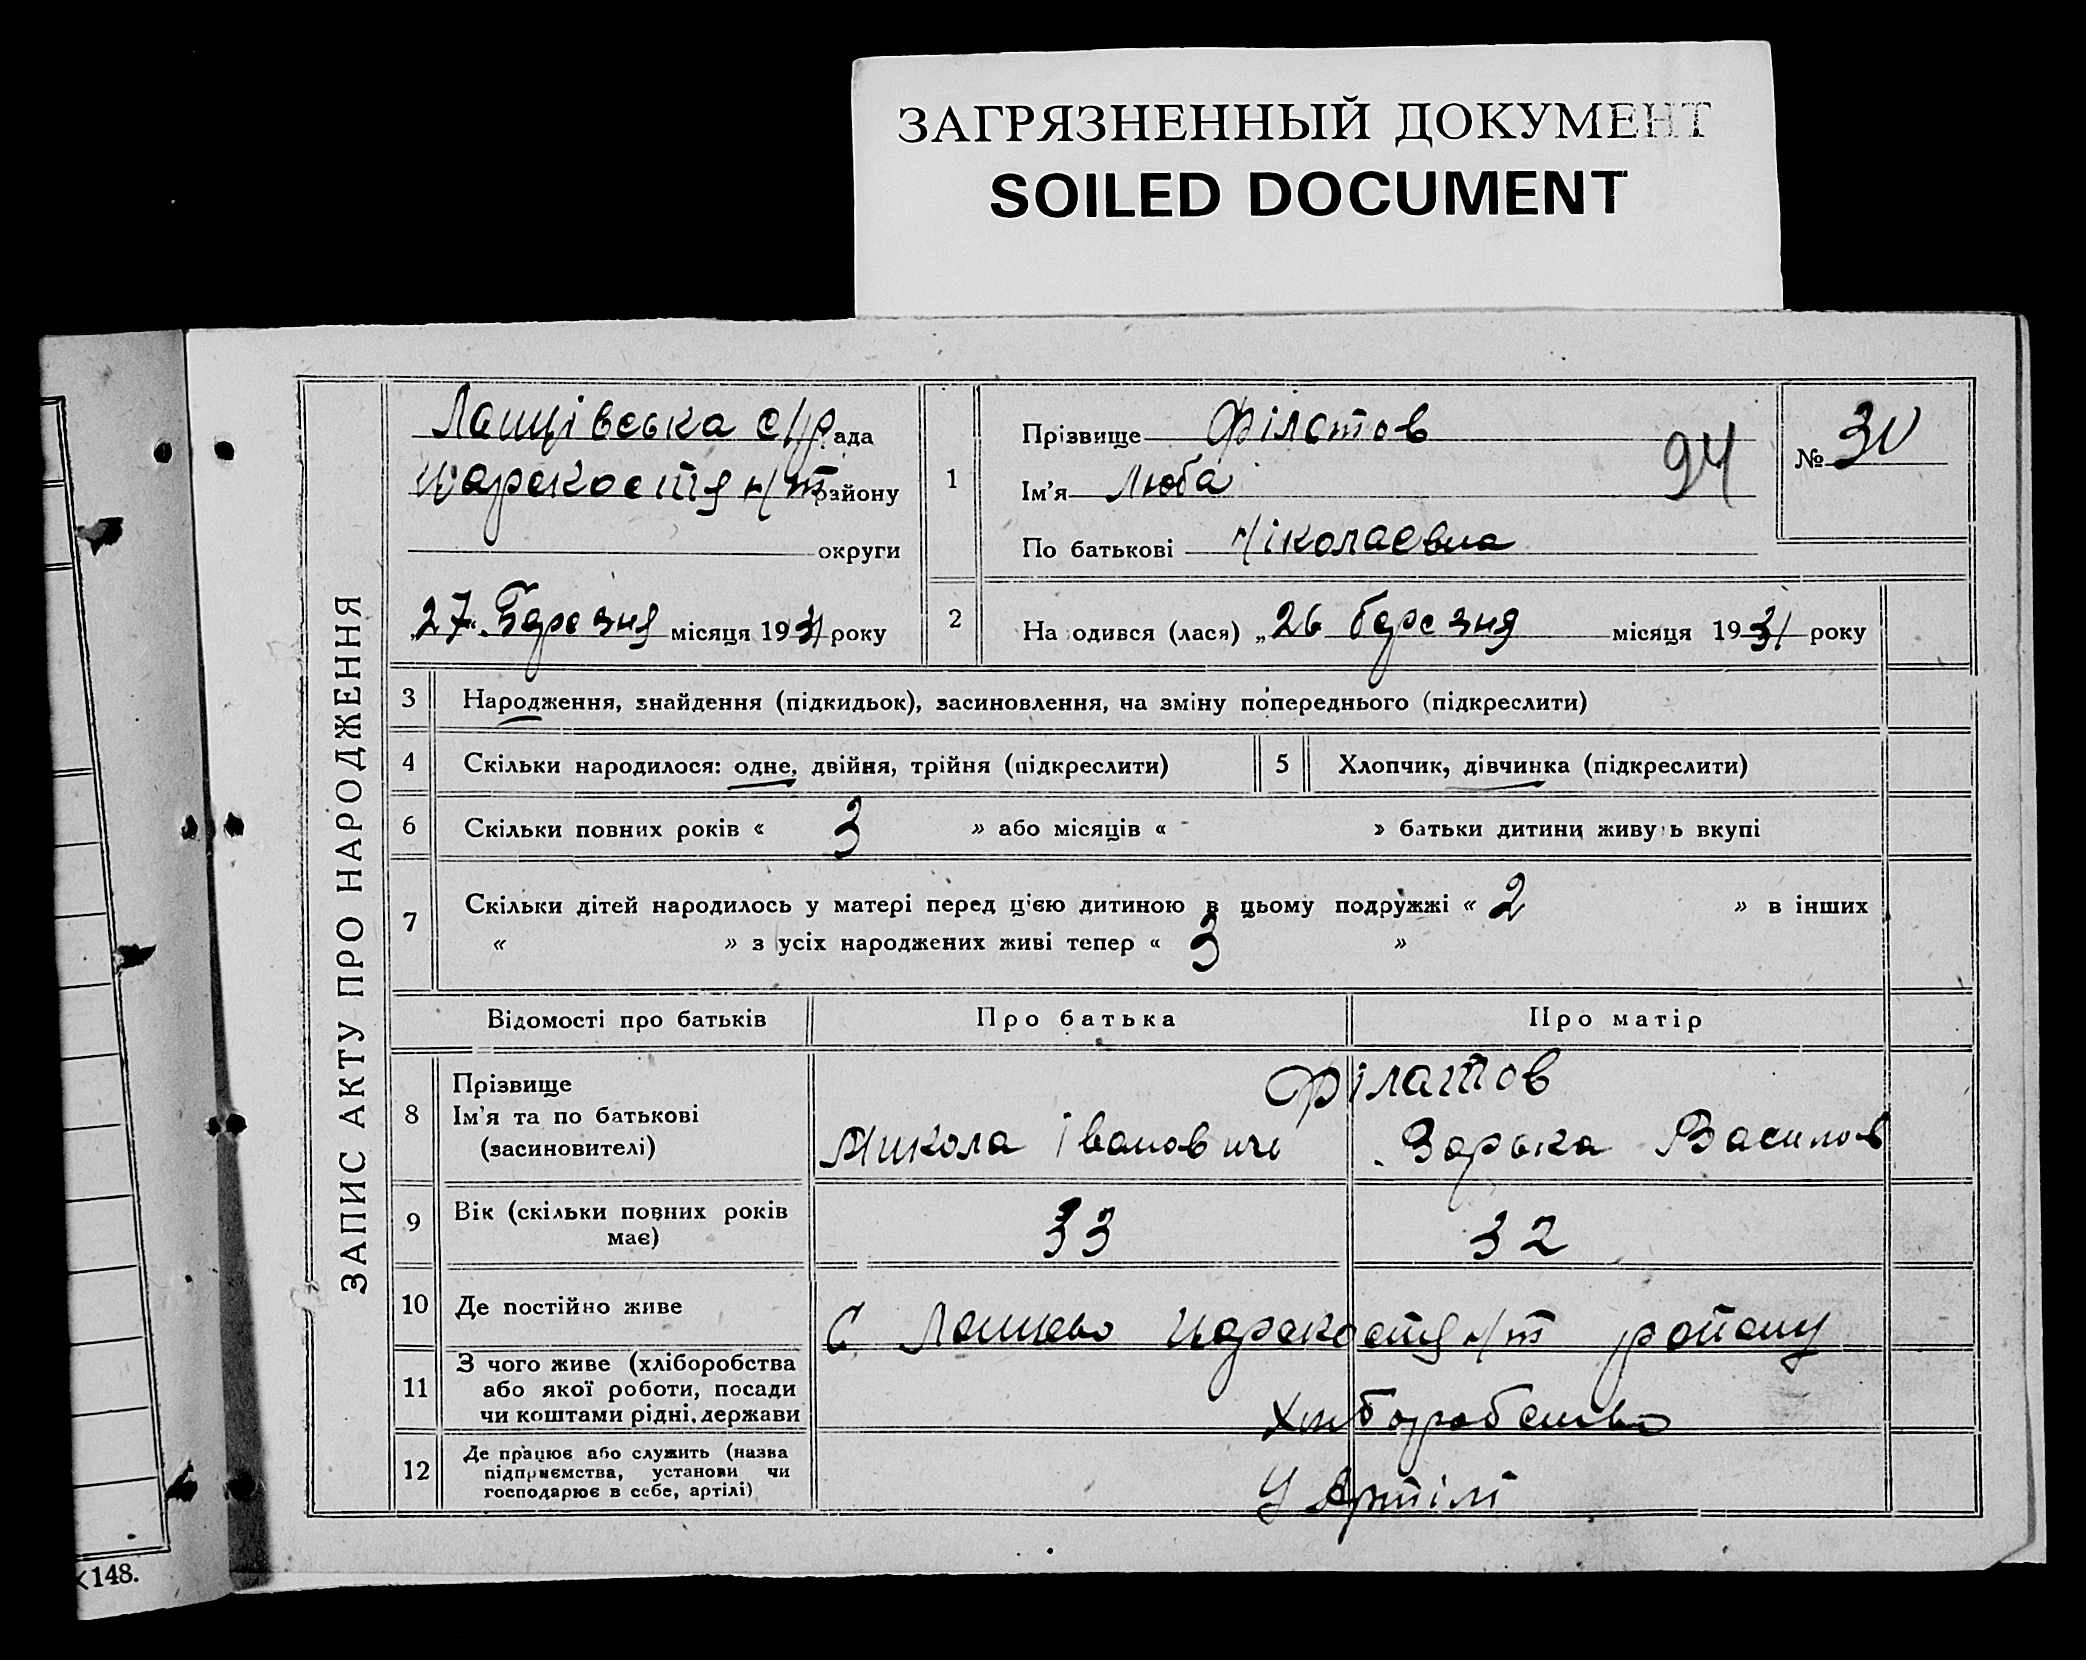 ЗАГРЯЗНЕННЫЙ ДОКУМЕНТ
SOILED DOCUMENT
ЗАПИС АКТУ ПРО НАРОДЖЕННЯ
Лащівська с/рада
району
округи
27 Березня місяця 1931 року
1
Прізвище Філатов
Ім'я Люба
По батькові Ніколаєвна
94
№ 30
2
На одився (лася) „26 березня місяця 1931 року
3 Народження, знайдення (підкидьок), засиновлення, на зміну попереднього (підкреслити)
4 Скільки народилося: одне, двійня, трійня (підкреслити) 5 Хлопчик, дівчинка (підкреслити)
6 Скільки повних років « 3 » або місяців « » батьки дитини живуть вкупі
7 Скільки дітей народилось у матері перед цією дитиною в цьому подружжі « 2 » в інших
« » з усіх народжених живі тепер « 3 »
Відомості про батьків Про батька Про матір
8 Прізвище Філатов
Ім'я та по батькові Микола Іванович
(засиновителі)
9 Вік (скільки повних років має) 33 32
10 Де постійно живе С. району
11 З чого живе (хліборобства
або якої роботи, посади
чи коштами рідні, держави Хліборобство
12 Де працює або служить (назва
підприємства, установи чи
господарює в себе, артілі) У Артілі
148.